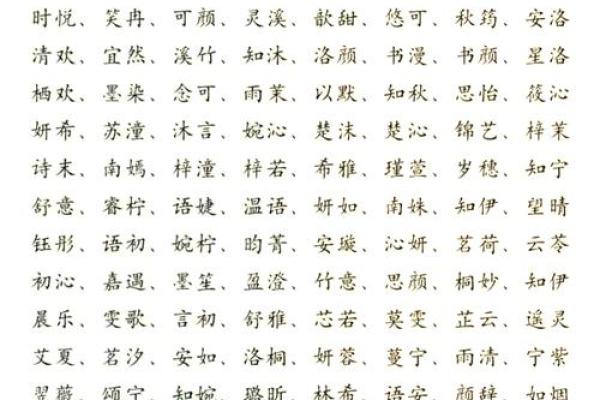 时悦、笑冉、可颜、灵溪、歆甜、悠可、秋筠、安洛
清欢、宜然、溪竹、知沐、洛颜、书漫、书颜、星洛
栖欢、墨染、念可、雨茉、以默、知秋、思怡、筱沁
妍希、苏潼、沐言、婉沁、楚沫、楚沁、锦艺、梓茉
诗末、南嫣、梓潼、梓若、希雅、瑾萱、岁穗、知宁
舒意、睿柠、语婕、温语、妍如、南姝、知伊、望晴
钰彤、语初、婉柠、昀菁、安璇、沁妍、茗荷、云苓
初沁、嘉遇、墨笙、盈澄、竹意、思颜、桐妙、知伊
晨乐、雯歌、言初、舒雅、芯若、莫雯、芷云、遥灵
艾夏、茗汐、安如、洛桐、妍蓉、蔓宁、雨清、宁紫
翌薇、颂宁、知婉、璐昕、林希、语安、颜辞、如烟